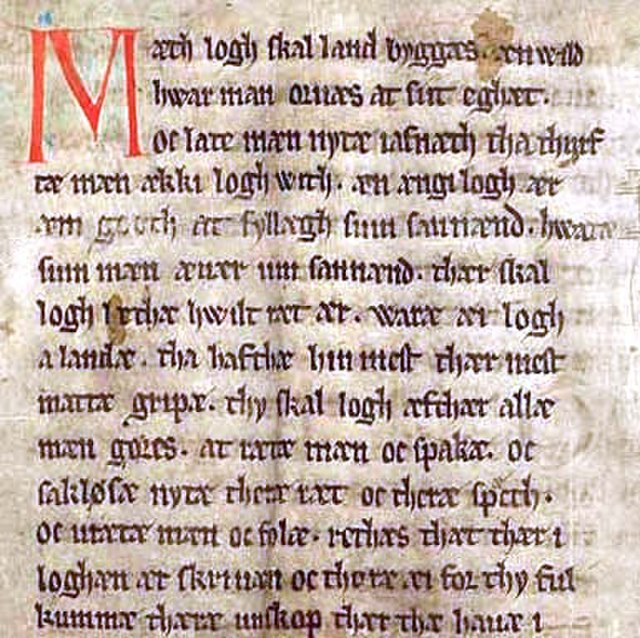 Mæth logh skal land byggæs. æn wild
hwar man oruæs at sitt eghæt.
oc late mæn nytæ iafnæth tha thyrf
tæ mæn ækki logh with. æn ængi logh ær
æm gooth at fyllægh sum sannænd. hwaræ
sum mæn æuær um sannænd. thær skal
logh lethæ hwilt ræt ær. waræ æi logh
a landæ. tha hafthæ hin mest thær mest
mattæ gripæ. thy skal logh æfthær allæ
mæn gøres. at rætæ mæn oc spakæ. oc
sakløsæ nytæ theræ ræt oc theræ spech.
oc urætæ mæn oc folæ. rethæs that thær i
loghæn ær skriuan oc thoræ æi for thy ful
kummæ theræ unskop thær thæ hauæ i